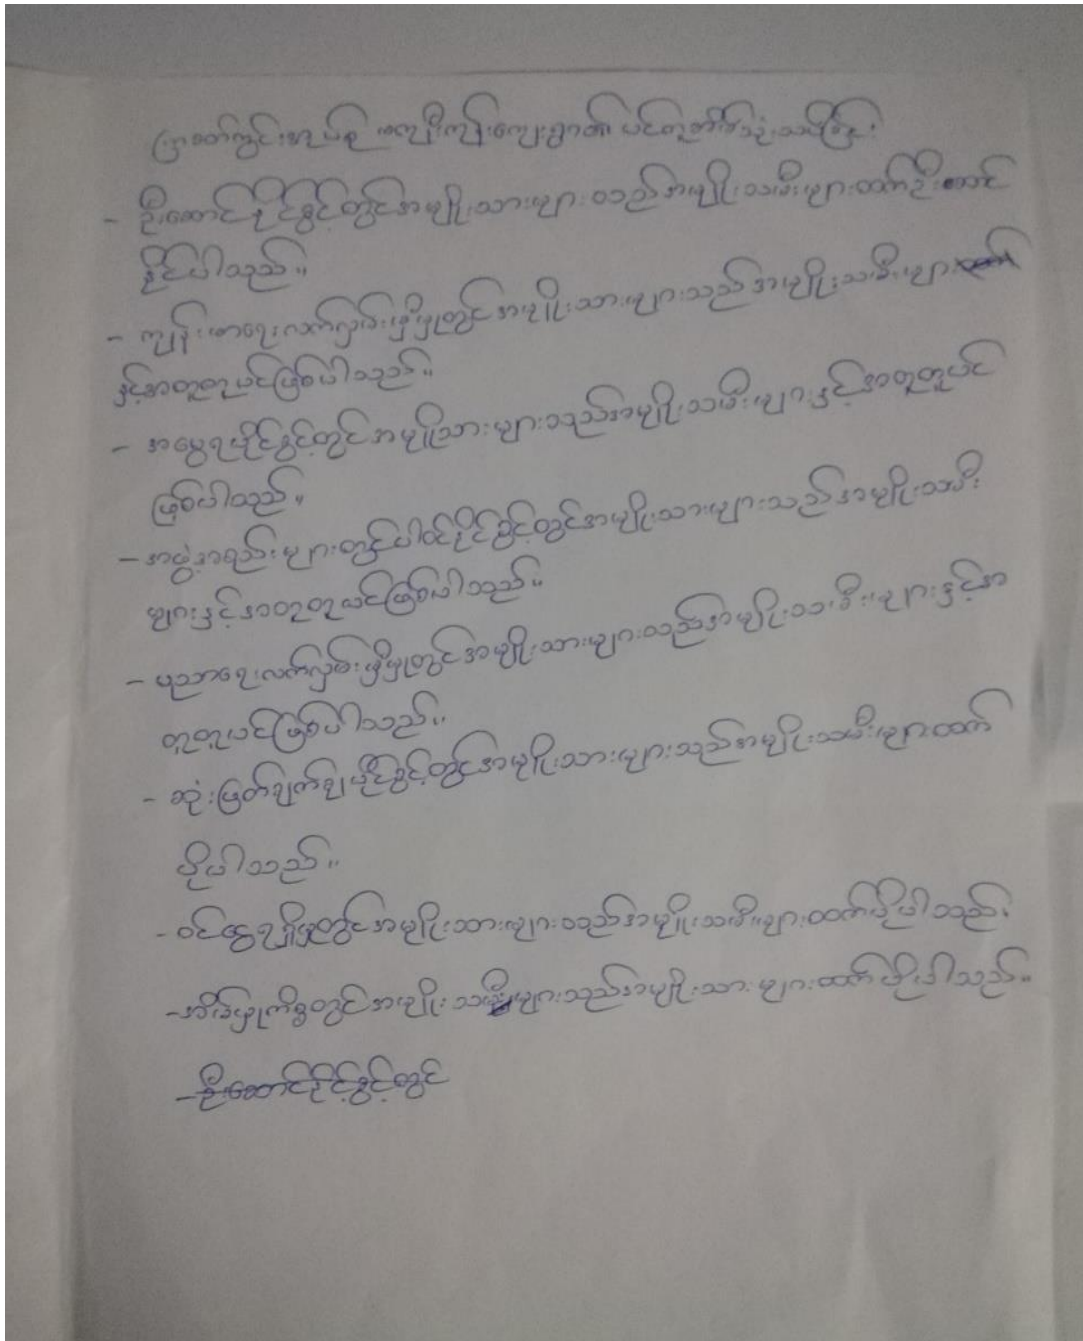 ကျေးရွာ၏
- ဦးဆောင်နိုင်ခွင့်တွင်အမျိုးသားများသည်အမျိုးသမီးများထက်ဦးဆောင်
နိုင်ပါသည်။
- ကျန်းမာရေးလက်လှမ်းမှီမှုတွင်အမျိုးသားများသည်အမျိုးသမီးများ
နှင့်အတူတူပင်ဖြစ်ပါသည်။
- အမွေရပိုင်ခွင့်တွင်အမျိုးသားများသည်အမျိုးသမီးများနှင့်အတူတူပင်
ဖြစ်ပါသည်။
- အဖွဲ့အစည်းများတွင်ပါဝင်နိုင်ခွင့်တွင်အမျိုးသားများသည်အမျိုးသမီး
များနှင့်အတူတူပင်ဖြစ်ပါသည်။
- ပညာရေးလက်လှမ်းမှီမှုတွင်အမျိုးသားများသည်အမျိုးသမီးများနှင့်အ
တူတူပင်ဖြစ်ပါသည်။
- ဆုံးဖြတ်ချက်ချပိုင်ခွင့်တွင်အမျိုးသားများသည်အမျိုးသမီးများထက်
ပိုပါသည်။
- ဝင်ငွေရရှိမှုတွင်အမျိုးသားများသည်အမျိုးသမီးများထက်ပိုပါသည်။
- အိမ်မှုကိစ္စတွင်အမျိုးသမီးများသည်အမျိုးသားများထက်ပိုပါသည်။
- ဦးဆောင်နိုင်ခွင့်တွင်